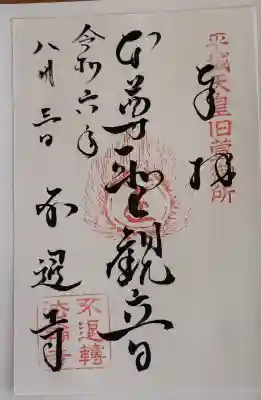 平城天皇旧萱所
奉拝
本尊聖観音
令和六年
八月三日
不退寺
不退轉
法輪寺